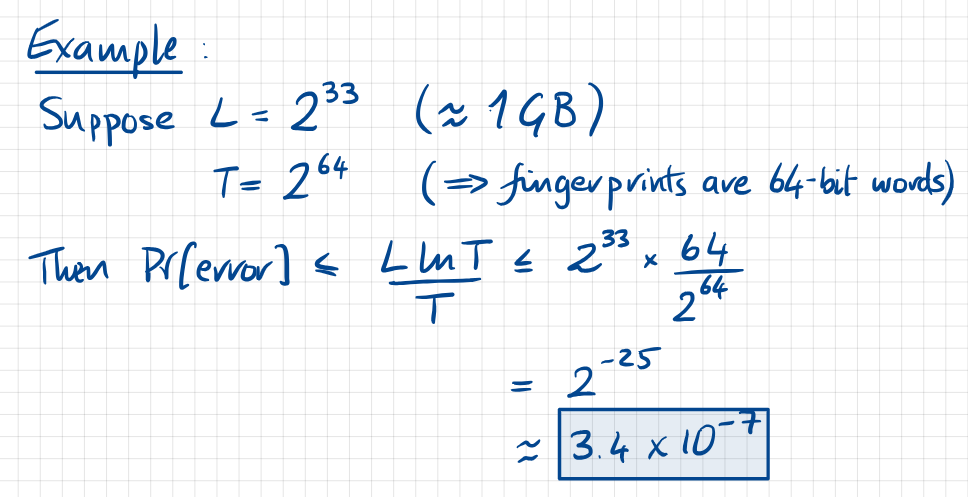 Example :
Suppose L = 2^33 (≈ 1GB)
T = 2^64 (⇒ fingerprints are 64-bit words)
Then Pr[error] ≤ (L ln T)/T ≤ 2^33 × 64/2^64
= 2^-25
≈ 3.4 × 10^-7